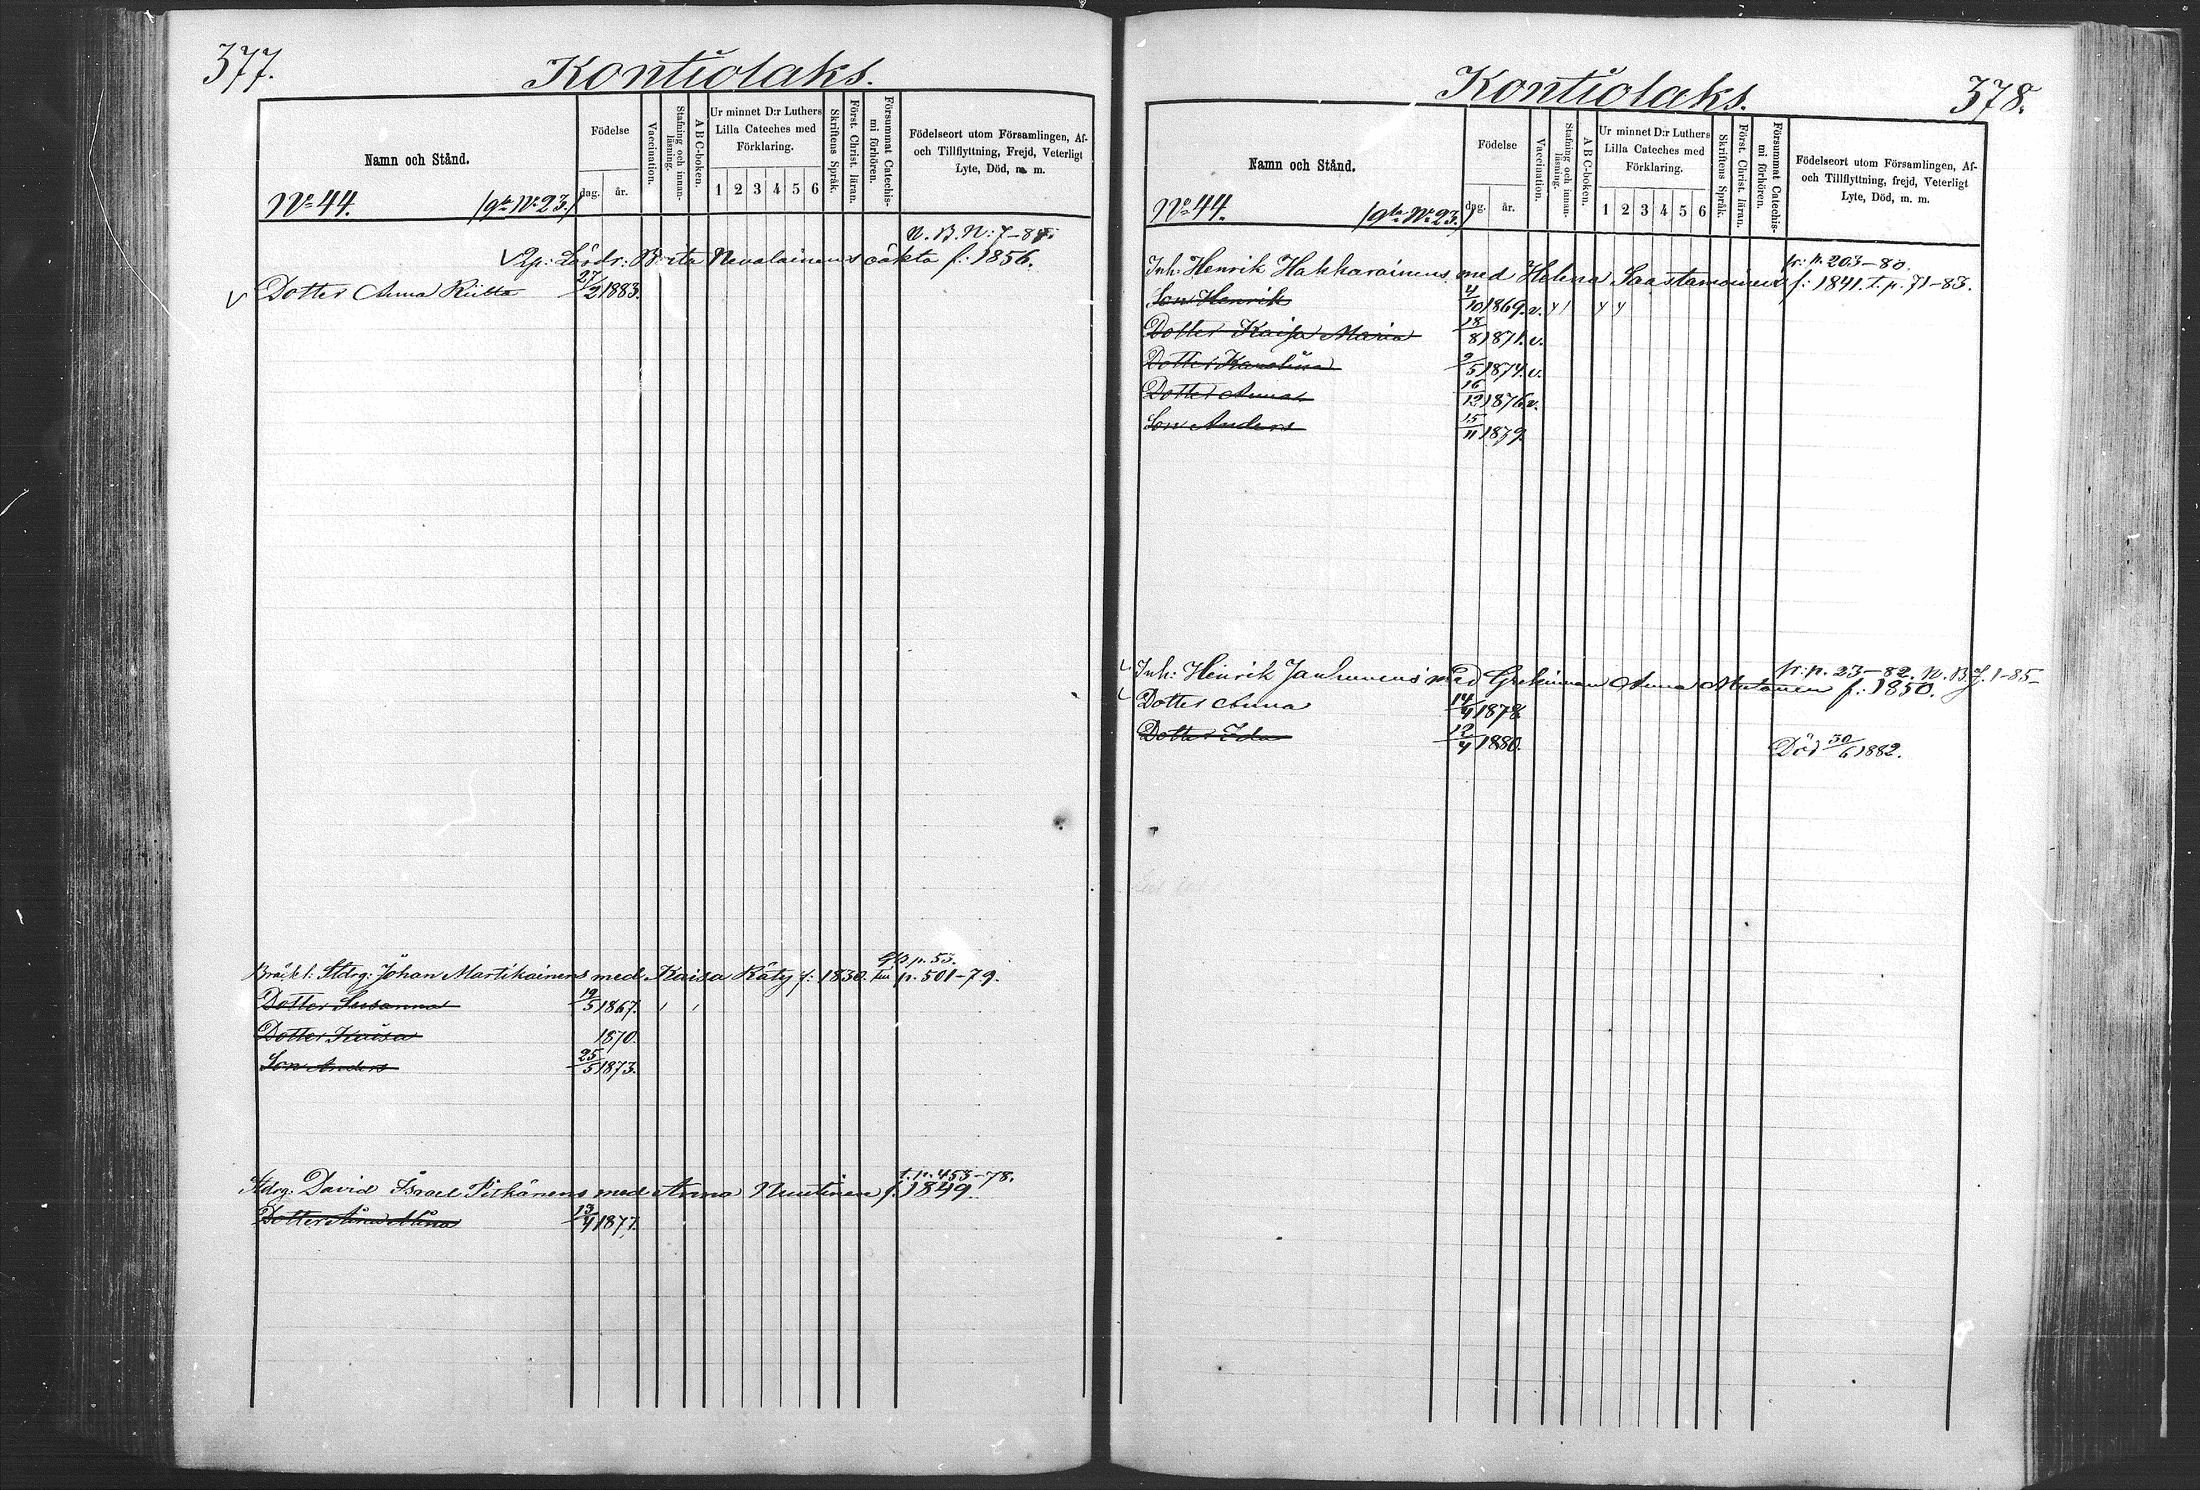 377.
Kontiolaks.
Namn och Stånd.
Födelse
dag. år.
Vaccination.
Stafning och innan-läsning.
A B C-boken.
Ur minnet D:r Luthers
Lilla Cateches med
Förklaring.
1 2 3 4 5 6
Skriftens Språk.
Först. Christ. läran.
Försummat Catechis-mi förhören.
Födelseort utom Församlingen, Af-
och Tillflyttning, Frejd, Veterligt
Lyte, Död, m. m.
No 44. (gla No 23.)
N. B. N: 7-84.
Brita Nevalainens oäkta f: 1856.
Dotter Anna Riitta 27/2 1883.
gB p. 53.
Bräckl: Stdrg: Johan Martikainens med Kaisa Räty f: 1830. p. 501-79.
Dotter Susanna 19/5 1867.
Dotter Kaisa 1870.
Son Anders 25/5 1873.
t. p. 453-78.
Stdrg. David Israel Pitkänens med Anna Nuutinen f. 1849.
Dotter Anna Alina 13/4 1877.
Kontiolaks. 378.
Namn och Stånd.
Födelse
dag. år.
Vaccination.
Stafning och innan-läsning.
A B C-boken.
Ur minnet D:r Luthers
Lilla Cateches med
Förklaring.
1 2 3 4 5 6
Skriftens Språk.
Först. Christ. läran.
Försummat Catechis-mi förhören.
Födelseort utom Församlingen, Af-
och Tillflyttning, frejd, Veterligt
Lyte, Död, m. m.
No 44. (gla No 23.)
fr: p. 203-80.
Inh: Henrik Hakkarainens med Helena Saastamoinen f: 1841. t. p. 71-83.
Son Henrik 4/10 1869. v.
Dotter Kaisa Maria 18/8 1871. v.
Dotter Karolina 9/5 1874. v.
Dotter Anna 16/12 1876. v.
Son Anders 15/11 1879.
fr. p. 23-82. N. B. J. 1-85
Inh: Henrik Janhunens med Anna f. 1850.
Dotter Anna 14/9 1878
Dotter Ida 12/4 1880. Död 30/6 1882.